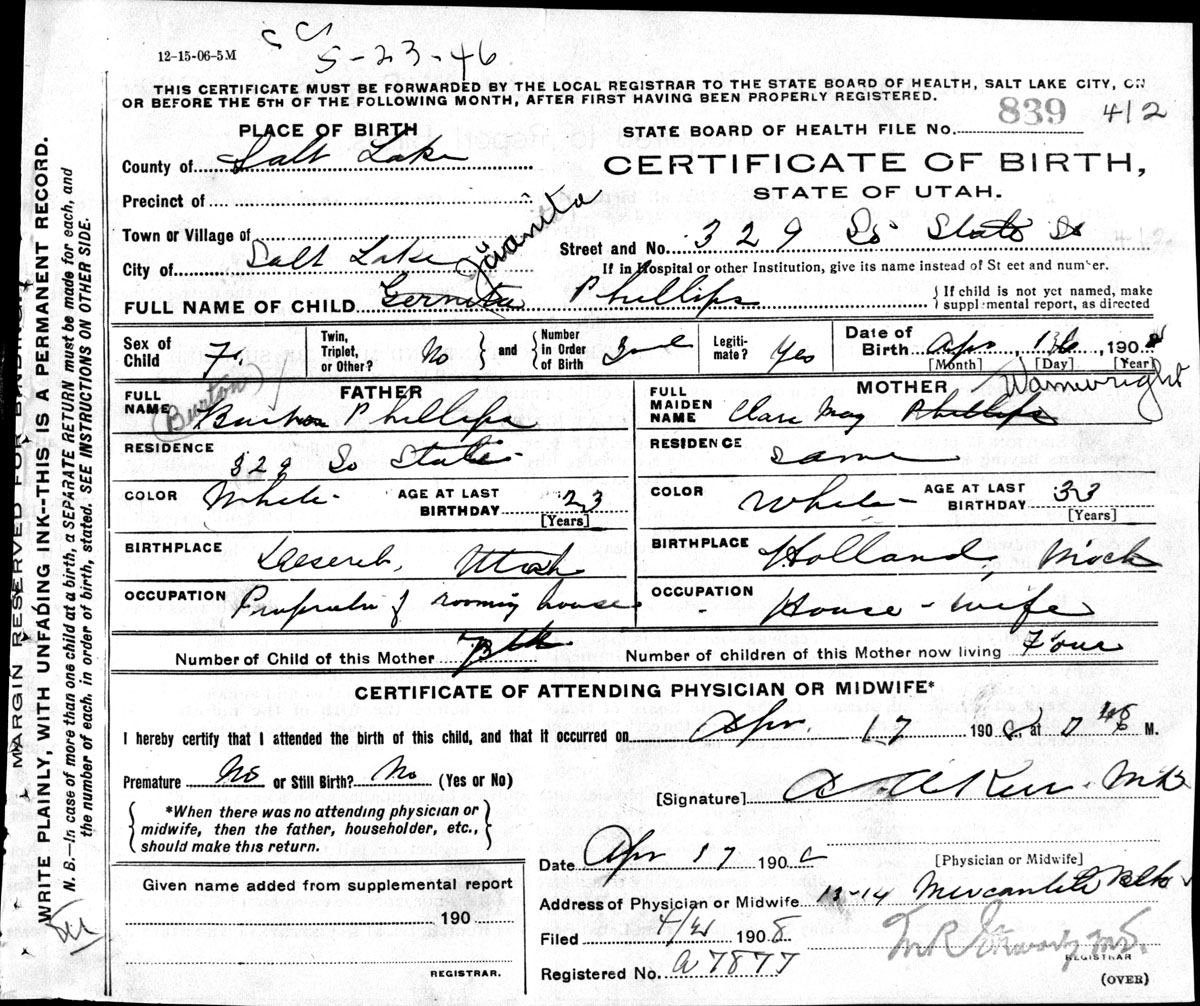 12-15-06-5M
5-23-46
THIS CERTIFICATE MUST BE FORWARDED BY THE LOCAL REGISTRAR TO THE STATE BOARD OF HEALTH, SALT LAKE CITY, ON
OR BEFORE THE 5TH OF THE FOLLOWING MONTH, AFTER FIRST HAVING BEEN PROPERLY REGISTERED.
STATE BOARD OF HEALTH FILE No. 839 412
CERTIFICATE OF BIRTH,
STATE OF UTAH.
PLACE OF BIRTH
County of Salt Lake
Precinct of
Town or Village of
City of Salt Lake
Street and No. 329 So State St
If in Hospital or other Institution, give its name instead of St eet and number.
Juanita
FULL NAME OF CHILD Phillips
{ If child is not yet named, make
suppl mental report, as directed
Sex of Child F.
Twin, Triplet, or Other? No
and Number in Order of Birth
Legitimate? Yes
Date of Birth Apr 190
[Month] [Day] [Year]
FATHER
FULL NAME (Burton) Phillips
RESIDENCE 329 So State
COLOR White
AGE AT LAST BIRTHDAY 23
[Years]
BIRTHPLACE Utah
OCCUPATION Proprietor of rooming house
MOTHER
Wainwright
FULL MAIDEN NAME Clara May Phillips
RESIDENCE same
COLOR White
AGE AT LAST BIRTHDAY 33
[Years]
BIRTHPLACE Holland, Mich
OCCUPATION House-wife
Number of Child of this Mother
Number of children of this Mother now living Four
CERTIFICATE OF ATTENDING PHYSICIAN OR MIDWIFE*
I hereby certify that I attended the birth of this child, and that it occurred on Apr. 17 190 at M.
Premature No or Still Birth? No (Yes or No)
{ *When there was no attending physician or
midwife, then the father, householder, etc.,
should make this return. }
[Signature] Kerr M.D.
[Physician or Midwife]
Date Apr 17 190
Address of Physician or Midwife 13-14 Mercantile Blk
Given name added from supplemental report
190
REGISTRAR.
Filed 4/21 1908
Registered No. A7877
REGISTRAR
(OVER)
MARGIN RESERVED FOR BINDING
WRITE PLAINLY, WITH UNFADING INK--THIS IS A PERMANENT RECORD.
N. B.—In case of more than one child at a birth, a SEPARATE RETURN must be made for each, and
the number of each, in order of birth, stated. SEE INSTRUCTIONS ON OTHER SIDE.